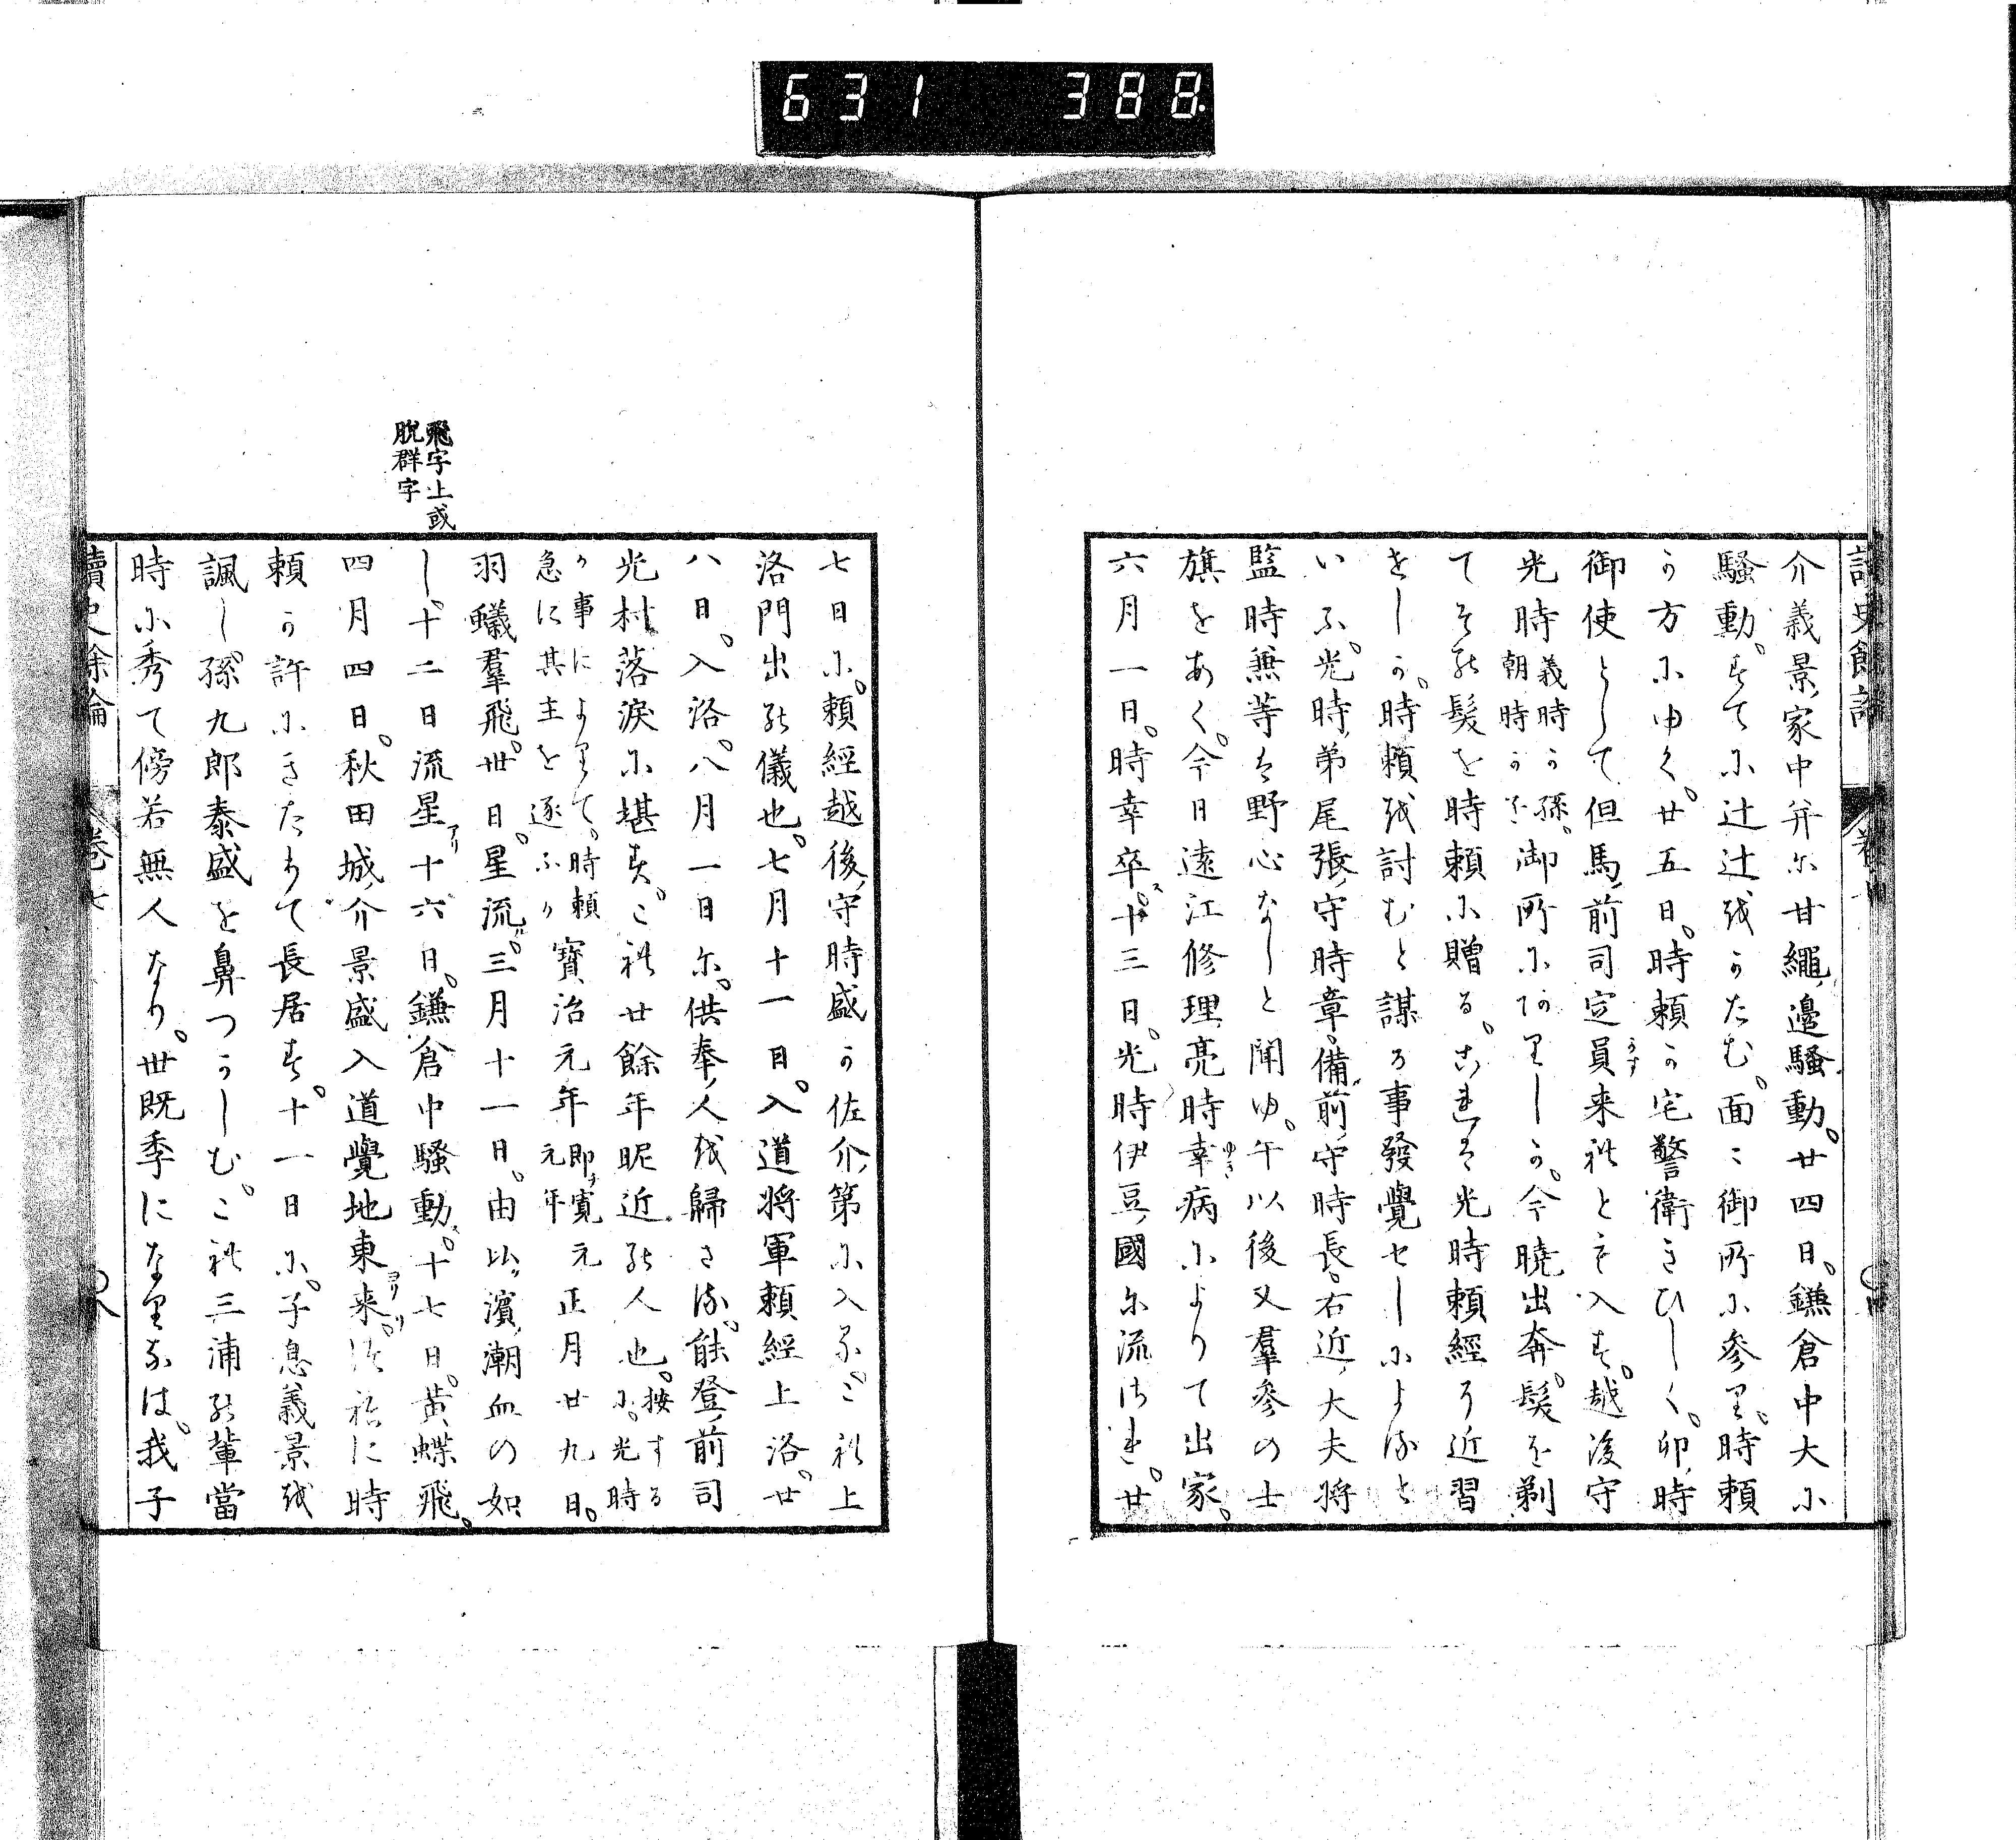 631 388
介義景家中并尓甘繩邊騷動。廿四日。鎌倉中大小
騷動。すてに辻辻をかたむ。面〻御所に参り。時頼
か方にゆく。廿五日。時頼か宅警衛きひしく。卯時
御使として但馬前司定員来れとも入す。越後守
光時
義時か孫。
朝時か子
御所にありしか。今曉出奔。髮を剃
てその髮を時頼に贈る。これは光時頼經の近習
をしか。時頼を討むと謀る事發覺せしによると
いふ。光時弟尾張守時章。備前守時長。右近大夫将
監時兼等は野心なしと聞ゆ。午以後又羣參の士
旗をあく。今日遠江修理亮時幸病によりて出家。
六月一日。時幸卒ス。十三日。光時伊豆國に流され。廿
七日に。頼經越後守時盛の佐介第に入る。これ上
洛門出の儀也。七月十一日。入道将軍頼經上洛。廿
八日。入洛。八月一日に。供奉人を歸さる。能登前司
光村落涙に堪す。これ廿餘年昵近の人也。
按する
に。光時
か事によりて。時頼
急に其主を逐ふか
寳治元年
即チ寛
元年
元正月廿九日。
羽蟻羣飛。卅日。星流。三月十一日。由比濱潮血の如
し。十二日流星アリ十六日。鎌倉中騷動。十七日。黄蝶飛。
飛字上或
脱群字
四月四日。秋田城介景盛入道覺地東来
に時
頼か許にきたりて長居す。十一日に。子息義景を
諷し。孫九郎泰盛を鼻つかしむ。これ三浦の輩當
時に秀て傍若無人なり。世既季になりなは。我子
讀史餘論
卷七